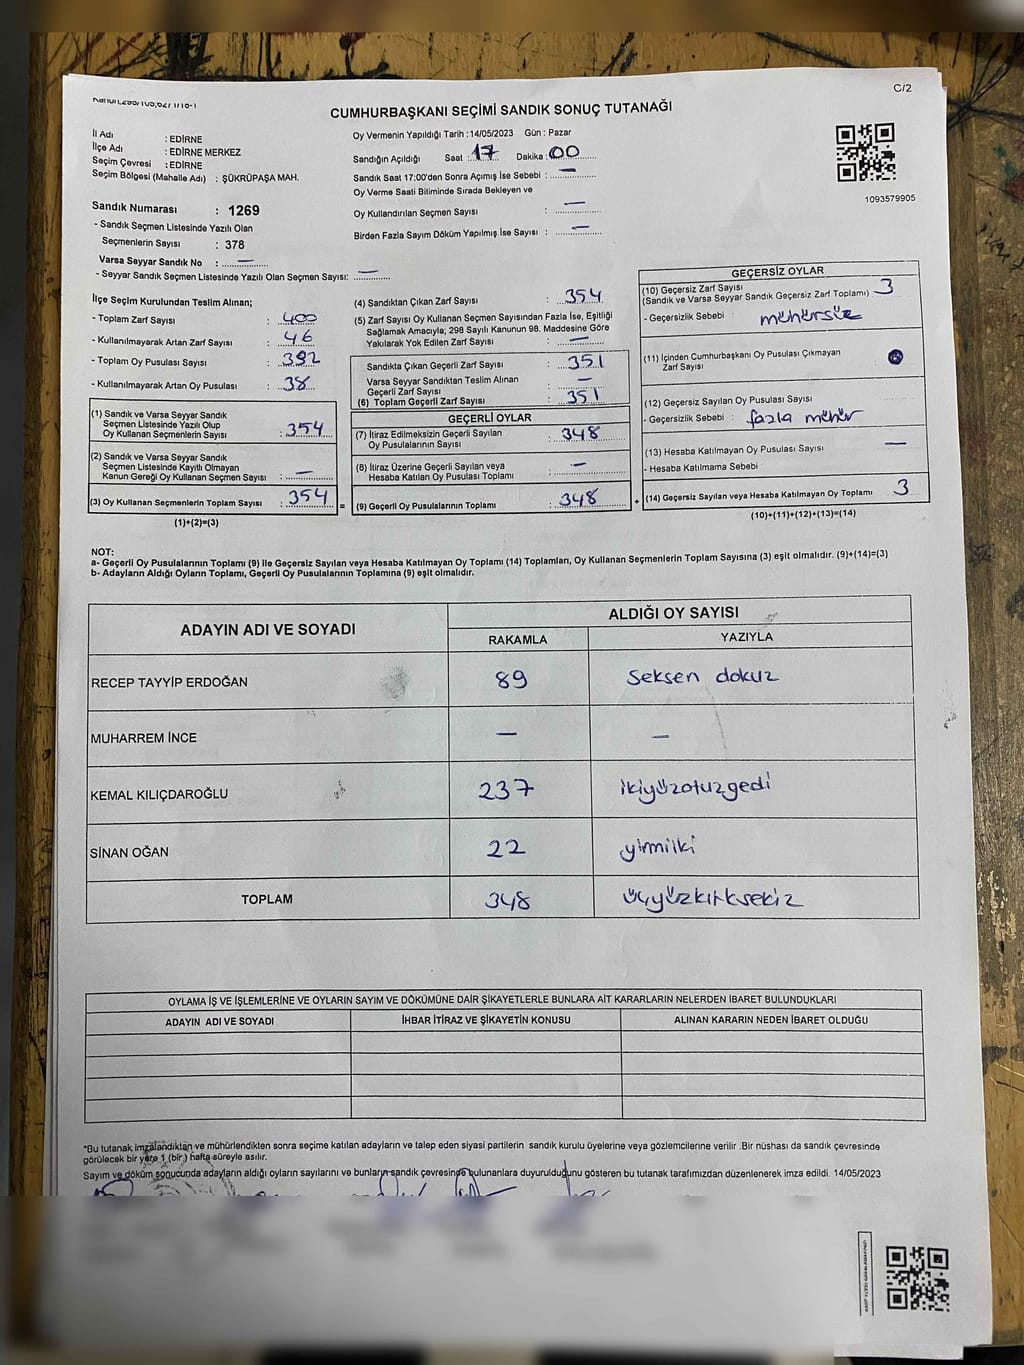 C/2
CUMHURBAŞKANI SEÇİMİ SANDIK SONUÇ TUTANAĞI
İl Adı : EDİRNE
İlçe Adı : EDİRNE MERKEZ
Seçim Çevresi : EDİRNE
Seçim Bölgesi (Mahalle Adı) : ŞÜKRÜPAŞA MAH.
Sandık Numarası : 1269
- Sandık Seçmen Listesinde Yazılı Olan
Seçmenlerin Sayısı : 378
Varsa Seyyar Sandık No : —
- Seyyar Sandık Seçmen Listesinde Yazılı Olan Seçmen Sayısı: —
Oy Vermenin Yapıldığı Tarih :14/05/2023 Gün : Pazar
Sandığın Açıldığı Saat : 17 Dakika : 00
Sandık Saat 17:00'den Sonra Açımış İse Sebebi : —
Oy Verme Saati Bitiminde Sırada Bekleyen ve
Oy Kullandırılan Seçmen Sayısı : —
Birden Fazla Sayım Döküm Yapılmış İse Sayısı : —
1093579905
İlçe Seçim Kurulundan Teslim Alınan;
- Toplam Zarf Sayısı : 400
- Kullanılmayarak Artan Zarf Sayısı : 46
- Toplam Oy Pusulası Sayısı : 392
- Kullanılmayarak Artan Oy Pusulası : 38
(1) Sandık ve Varsa Seyyar Sandık
Seçmen Listesinde Yazılı Olup
Oy Kullanan Seçmenlerin Sayısı : 354
(2) Sandık ve Varsa Seyyar Sandık
Seçmen Listesinde Kayıtlı Olmayan
Kanun Gereği Oy Kullanan Seçmen Sayısı : —
(3) Oy Kullanan Seçmenlerin Toplam Sayısı : 354
(1)+(2)=(3)
(4) Sandıktan Çıkan Zarf Sayısı : 354
(5) Zarf Sayısı Oy Kullanan Seçmen Sayısından Fazla İse, Eşitliği
Sağlamak Amacıyla; 298 Sayılı Kanunun 98. Maddesine Göre
Yakılarak Yok Edilen Zarf Sayısı : —
Sandıkta Çıkan Geçerli Zarf Sayısı : 351
Varsa Seyyar Sandıktan Teslim Alınan
Geçerli Zarf Sayısı : —
(6) Toplam Geçerli Zarf Sayısı : 351
GEÇERLİ OYLAR
(7) İtiraz Edilmeksizin Geçerli Sayılan
Oy Pusulalarının Sayısı : 348
(8) İtiraz Üzerine Geçerli Sayılan veya
Hesaba Katılan Oy Pusulası Toplamı : —
= (9) Geçerli Oy Pusulalarının Toplamı : 348 +
GEÇERSİZ OYLAR
(10) Geçersiz Zarf Sayısı : 3
(Sandık ve Varsa Seyyar Sandık Geçersiz Zarf Toplamı)
- Geçersizlik Sebebi : mühürsüz
(11) İçinden Cumhurbaşkanı Oy Pusulası Çıkmayan
Zarf Sayısı
(12) Geçersiz Sayılan Oy Pusulası Sayısı :
- Geçersizlik Sebebi : fazla mühür
(13) Hesaba Katılmayan Oy Pusulası Sayısı : —
- Hesaba Katılmama Sebebi
(14) Geçersiz Sayılan veya Hesaba Katılmayan Oy Toplamı : 3
(10)+(11)+(12)+(13)=(14)
NOT:
a- Geçerli Oy Pusulalarının Toplamı (9) ile Geçersiz Sayılan veya Hesaba Katılmayan Oy Toplamı (14) Toplamları, Oy Kullanan Seçmenlerin Toplam Sayısına (3) eşit olmalıdır. (9)+(14)=(3)
b- Adayların Aldığı Oyların Toplamı, Geçerli Oy Pusulalarının Toplamına (9) eşit olmalıdır.
ADAYIN ADI VE SOYADI ALDIĞI OY SAYISI
RAKAMLA YAZIYLA
RECEP TAYYİP ERDOĞAN 89 seksen dokuz
MUHARREM İNCE — —
KEMAL KILIÇDAROĞLU 237 ikiyüzotuzgedi
SİNAN OĞAN 22 yirmiiki
TOPLAM 348 üçyüzkırksekiz
OYLAMA İŞ VE İŞLEMLERİNE VE OYLARIN SAYIM VE DÖKÜMÜNE DAİR ŞİKAYETLERLE BUNLARA AİT KARARLARIN NELERDEN İBARET BULUNDUKLARI
ADAYIN ADI VE SOYADI İHBAR İTİRAZ VE ŞİKAYETİN KONUSU ALINAN KARARIN NEDEN İBARET OLDUĞU
*Bu tutanak imzalandıktan ve mühürlendikten sonra seçime katılan adayların ve talep eden siyasi partilerin sandık kurulu üyelerine veya gözlemcilerine verilir .Bir nüshası da sandık çevresinde
görülecek bir yere 1 (bir) hafta süreyle asılır.
Sayım ve döküm sonucunda adayların aldığı oyların sayılarını ve bunların sandık çevresinde bulunanlara duyurulduğunu gösteren bu tutanak tarafımızdan düzenlenerek imza edildi. 14/05/2023